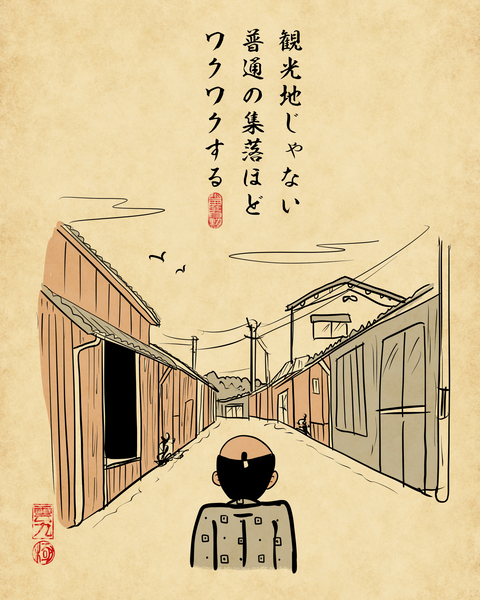 観光地じゃない
普通の集落ほど
ワクワクする